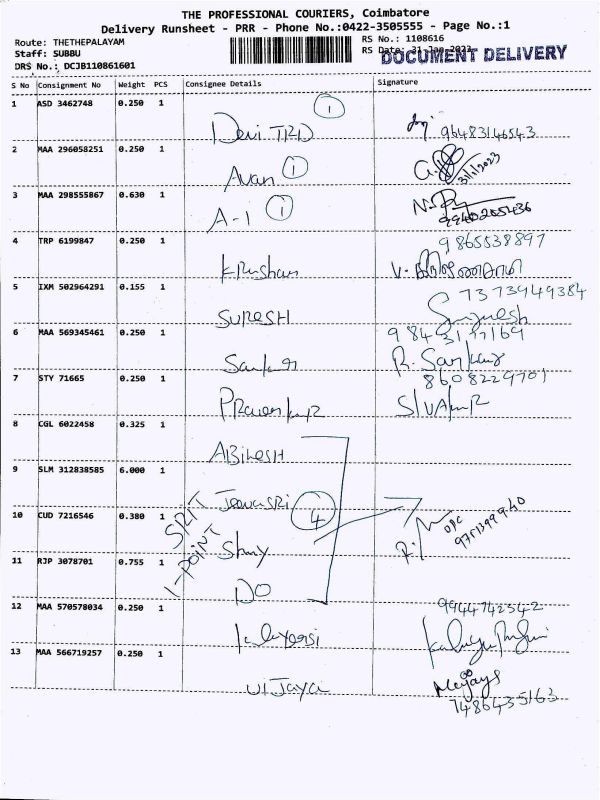 THE PROFESSIONAL COURIERS, Coimbatore
Delivery Runsheet - PRR - Phone No.:0422-3505555 - Page No.:1
Route: THETHEPALAYAM
RS No.: 1108616
Staff: SUBBU
RS Date: 31-Jan-2023
DOCUMENT DELIVERY
DRS No.: DCJB110861601
S No Consignment No Weight PCS Consignee Details Signature
1 ASD 3462748 0.250 1
1
Devi 96483146543
2 MAA 296058251 0.250 1
1
31/1/2023
3 MAA 298555867 0.630 1
A-1 1
9940205436
4 TRP 6199847 0.250 1
9865538897
5 IXM 502964291 0.155 1
7373949384
SURESH
6 MAA 569345461 0.250 1
R. Sankar
7 STY 71665 0.250 1
8608229701
SIVAkumR
8 CGL 6022458 0.325 1
ABINESH
9 SLM 312838585 6.000 1
4
10 CUD 7216546 0.380 1
1-POINT
11 RJP 3078701 0.755 1
DO
12 MAA 570578034 0.250 1
9944742542
13 MAA 566719257 0.250 1
VIJaya
7486435163